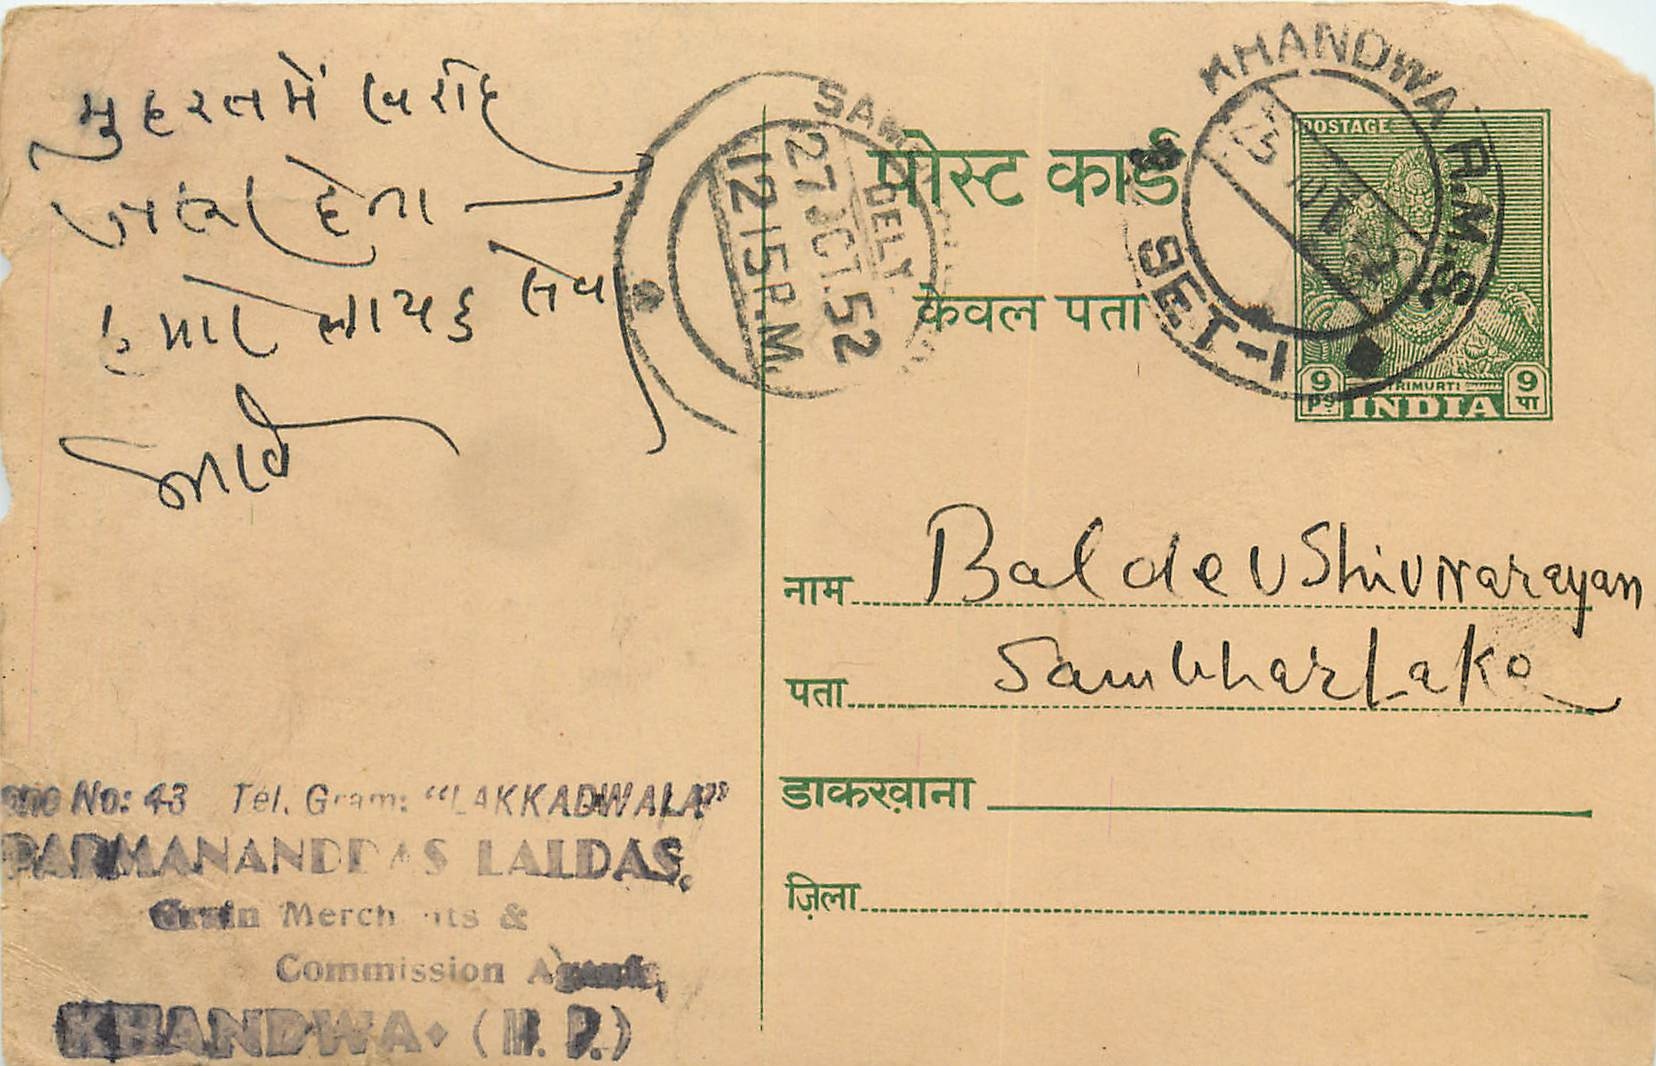 मुहरतमें खरीद
देना
हमारे लायक सेवा
पोस्ट कार्ड
केवल पता
27 OCT. 52
12 15 P.M.
DELY.
KHANDWA R.M.S.
SET-1
POSTAGE
TRIMURTI
9 ps INDIA 9 पा
नाम Baldev Shivnarayan
पता Sambhar Lake
डाकख़ाना
ज़िला
No: 43 Tel. Gram: "LAKKADWALA"
PARMANANDDAS LALDAS.
Grain Merchants &
Commission Agents,
KHANDWA (M. P.)